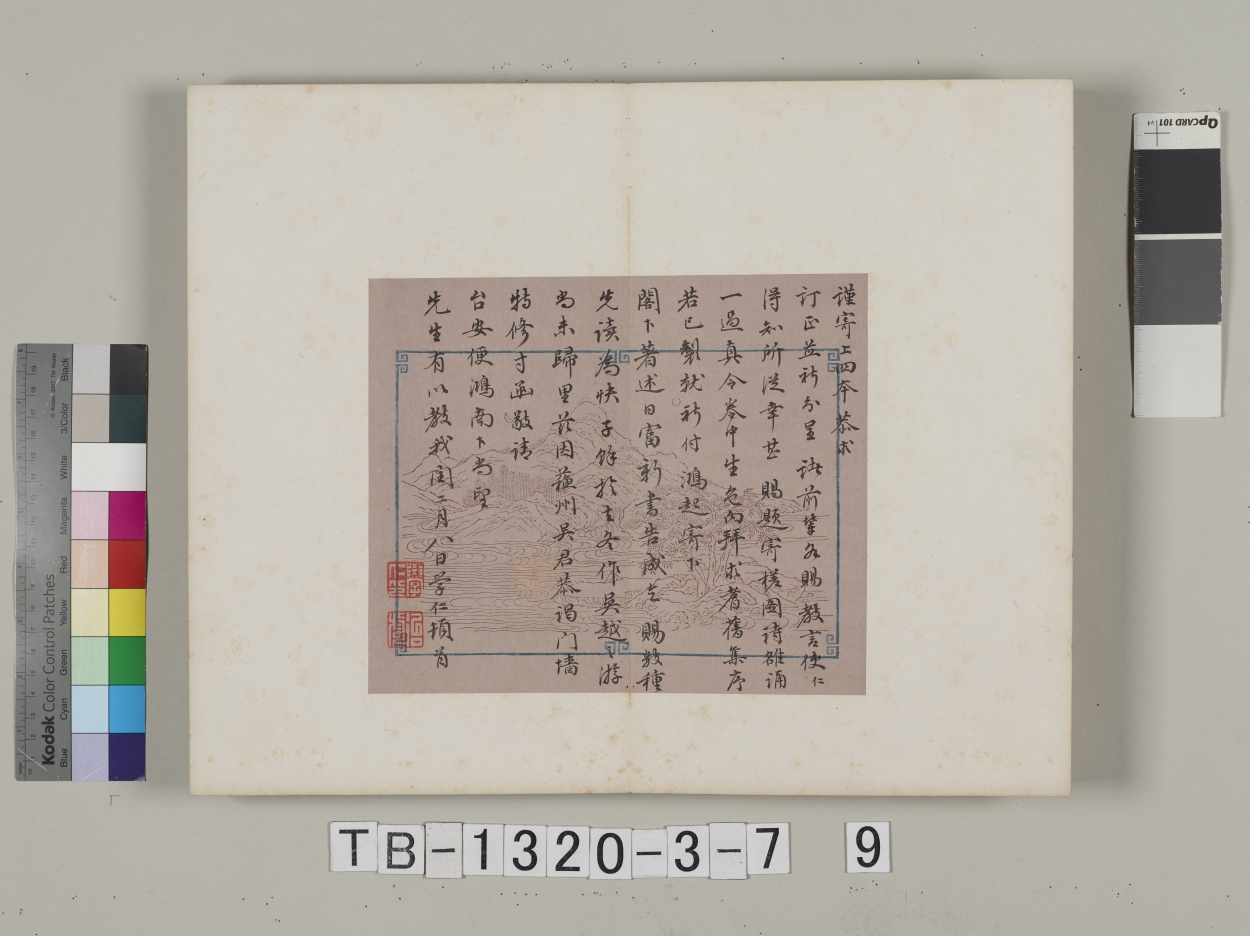 謹寄上四本恭求
訂正並祈分呈諸前輩各賜教言使仁
得知所從幸甚賜題寄槎圖詩雒誦
一過真令卷中生色向拜求耆舊集序
若已製就祈付鴻起寄下
閣下著述日富新書告成乞賜數種
先讀為快子餘於去冬作吳越之游
尚未歸里茲因蘇州吳君恭謁门墙
特修寸函敬請
台安便鴻南下尚望
先生有以教我閏二月八日學仁頓首
Kodak Color Control Patches
© Kodak, 2007 TM: Kodak
Blue Cyan Green Yellow Red Magenta White 3/Color Black
QpCARD 101 v4
TB-1320-3-7 9